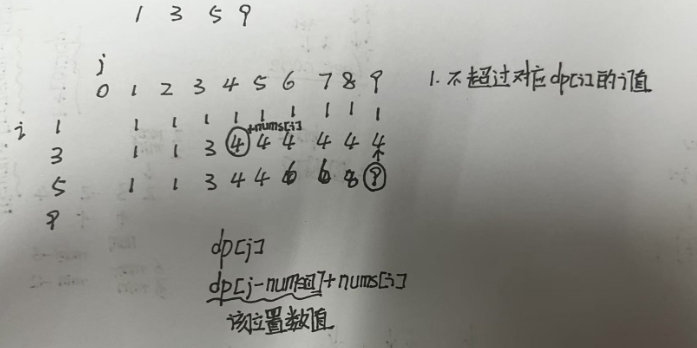 1 3 5 9
j
0 1 2 3 4 5 6 7 8 9 1. 不超过对应dp[j]的j值
i 1 1 1 1 1 1 1 1 1 1
+nums[i]
3 1 1 3 4 4 4 4 4 4
5 1 1 3 4 4 6 6 8 9
9
dp[j]
dp[j-nums[i]]+nums[i]
该位置数值